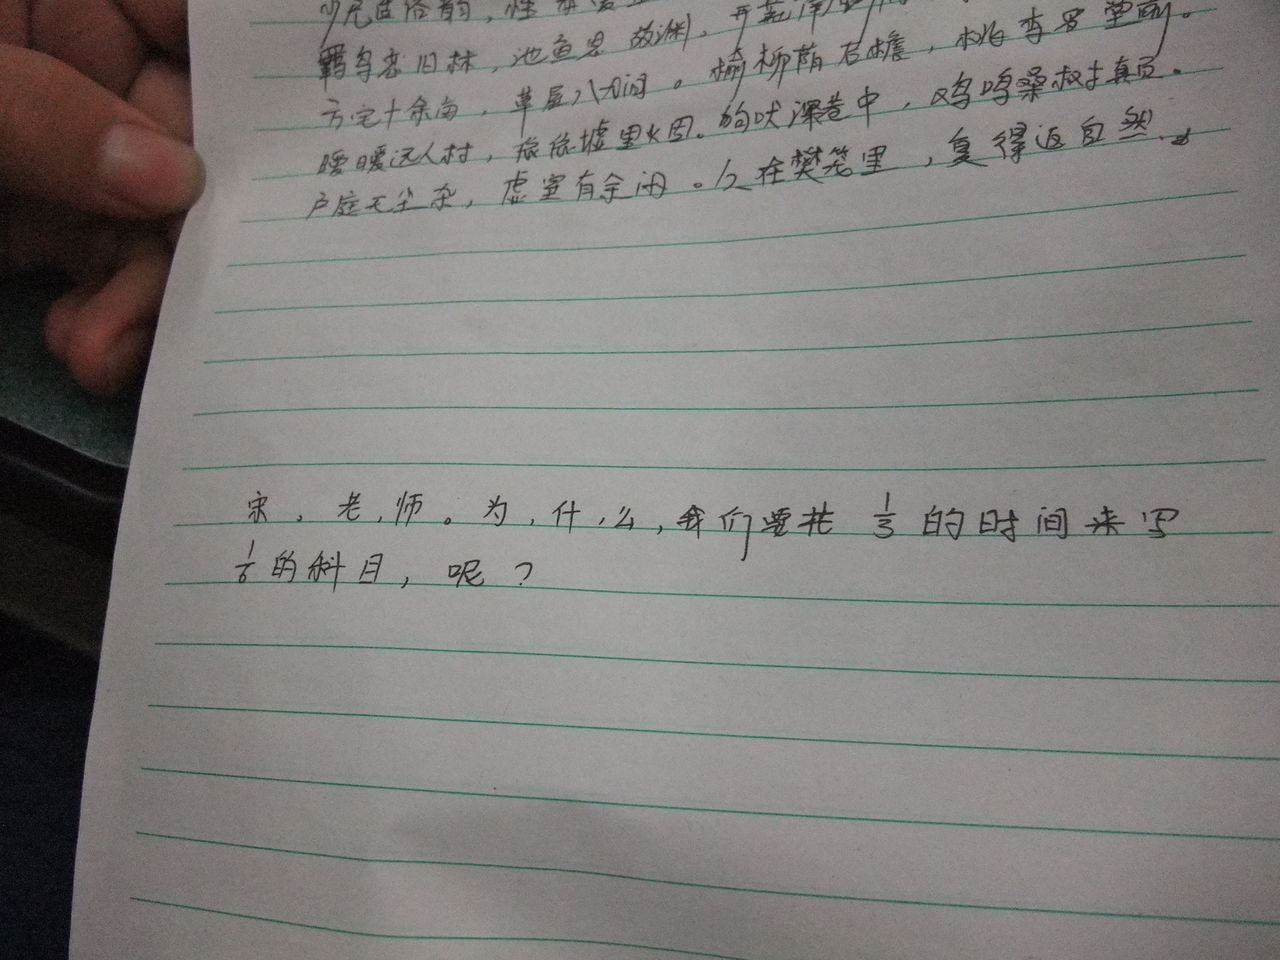 少无适俗韵，性
羁鸟恋旧林，池鱼思故渊。开荒南野
方宅十余亩，草屋八九间。榆柳荫后檐，桃李罗堂前。
暧暧远人村，依依墟里烟。狗吠深巷中，鸡鸣桑树颠。
户庭无尘杂，虚室有余闲。久在樊笼里，复得返自然。
宋，老，师。为，什，么，我们要花 1/3 的时间来写
1/6 的科目，呢？